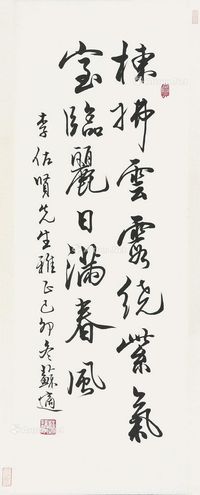 棟拂雲霞繞紫氣
室臨麗日滿春風
李佑賢先生雅正己卯冬蘇適